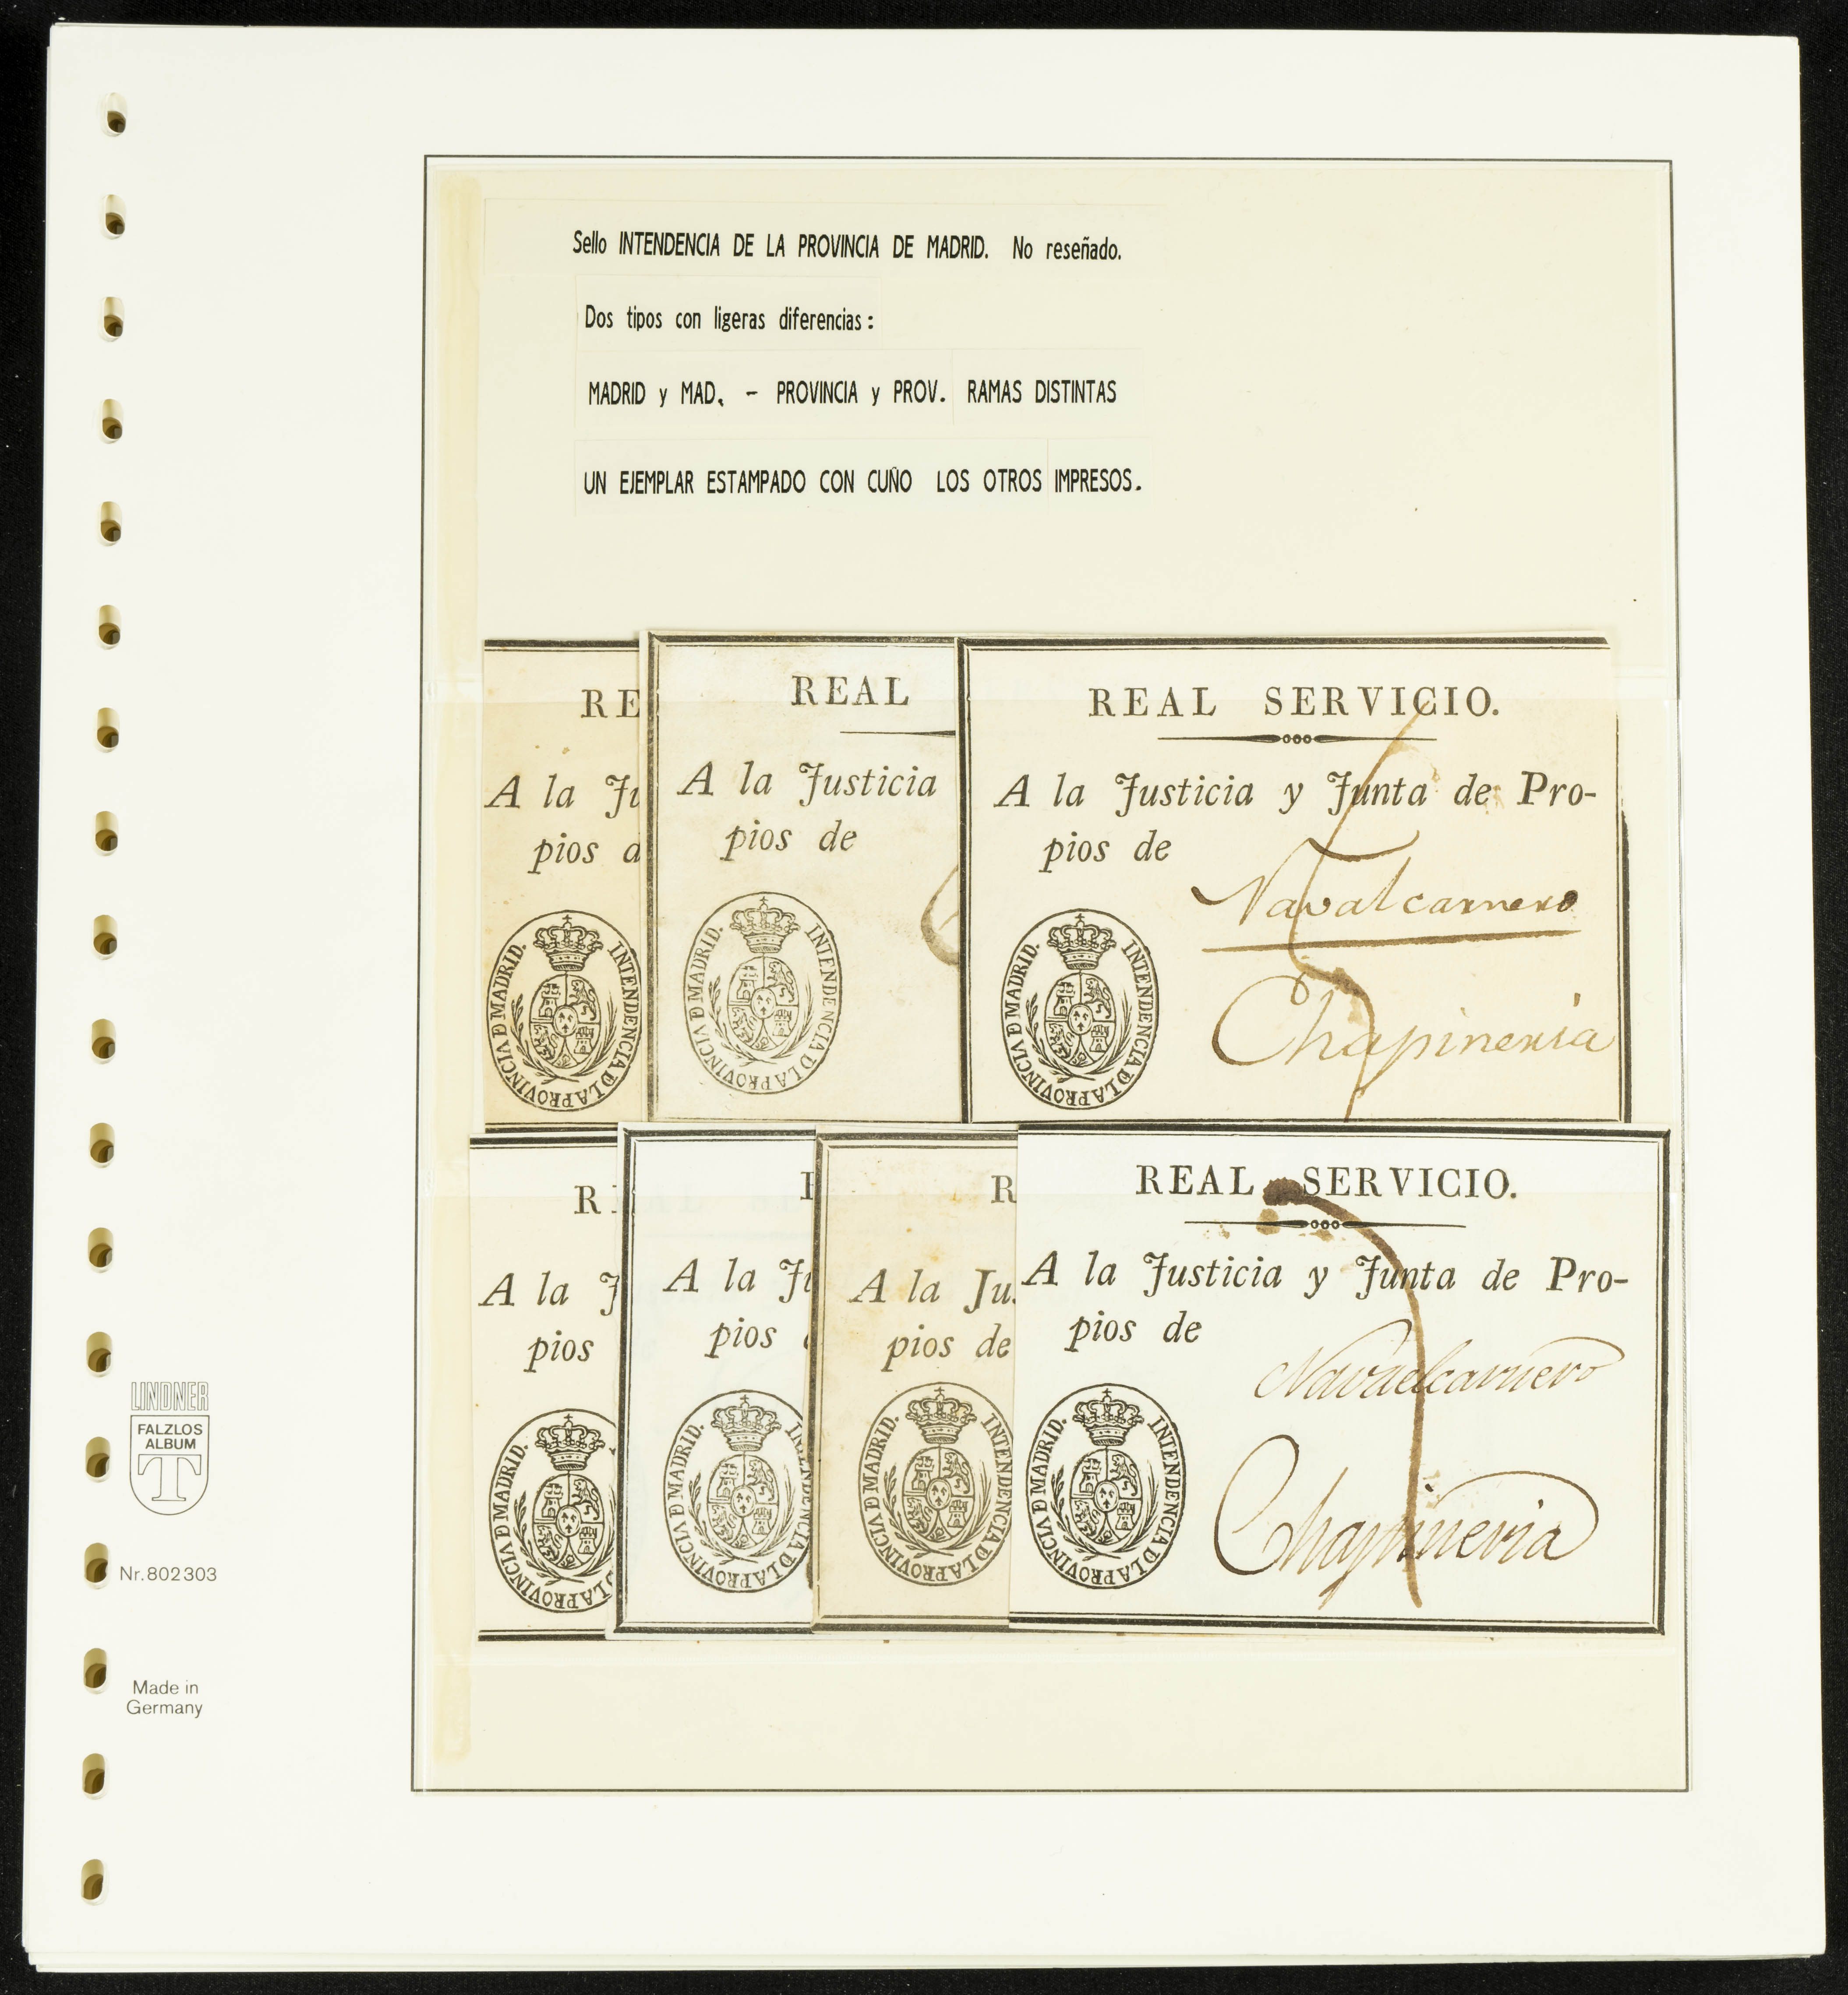 Sello INTENDENCIA DE LA PROVINCIA DE MADRID. No reseñado.
Dos tipos con ligeras diferencias:
MADRID y MAD. - PROVINCIA y PROV. RAMAS DISTINTAS
UN EJEMPLAR ESTAMPADO CON CUÑO LOS OTROS IMPRESOS.
RE
A la Ju
pios d
INTENDENCIA D LA PROVINCIA D MADRID.
REAL
A la Justicia
pios de
INTENDENCIA D LA PROVINCIA D MADRID.
REAL SERVICIO.
A la Justicia y Junta de Pro-
pios de
Navalcarnero
Chapineria
INTENDENCIA D LA PROVINCIA D MADRID.
R
A la J
pios
D LA PROVINCIA D MADRID.
A la Ju
pios
INTENDENCIA D LA PROVINCIA D MADRID.
R
A la Ju
pios de
INTENDENCIA D LA PROVINCIA D MADRID.
REAL SERVICIO.
A la Justicia y Junta de Pro-
pios de
Navalcarnero
Chapineria
INTENDENCIA D LA PROVINCIA D MADRID.
LINDNER
FALZLOS
ALBUM
T
Nr. 802 303
Made in
Germany